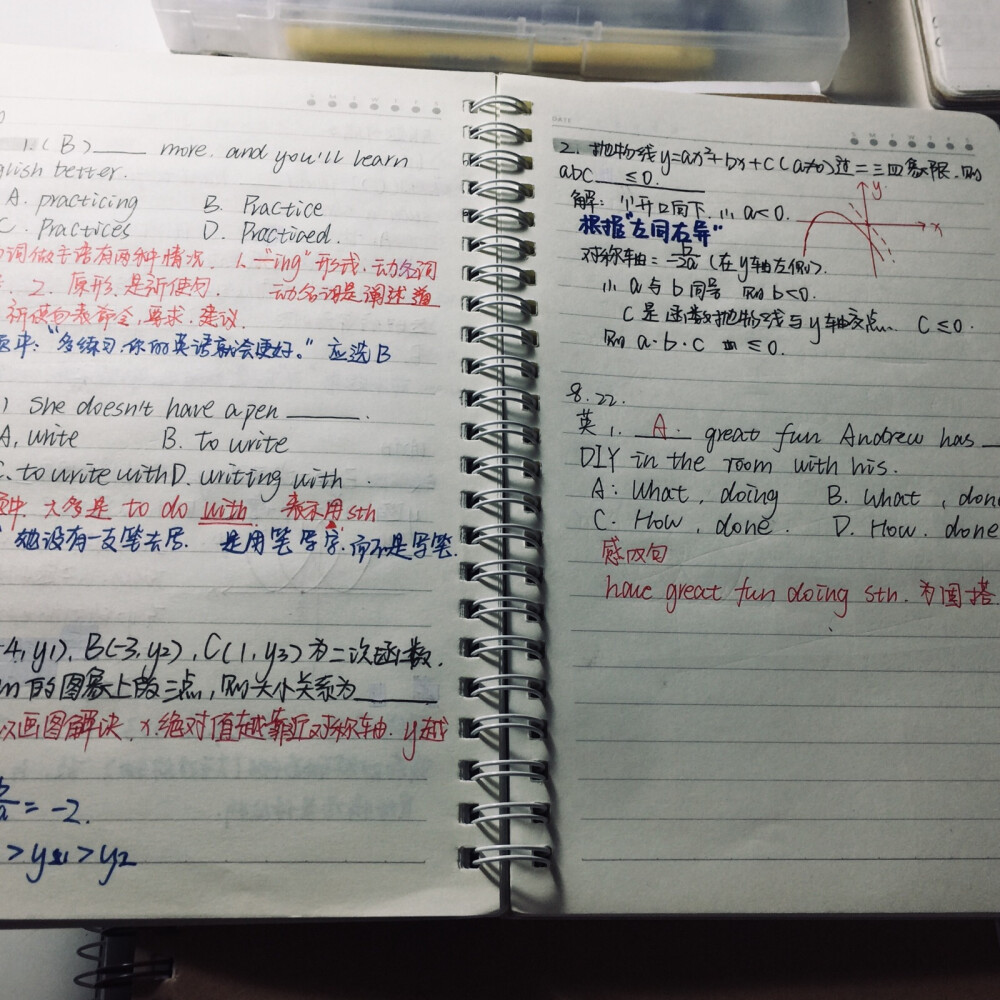 1.(B)____ more. and you'll learn
glish better.
A. practicing B. Practice
C. Practices D. Practiced.
词做主语有两种情况. 1. "ing"形式, 动名词
2. 原形, 是祈使句. 动名词是阐述
祈使句表命令, 要求, 建议.
"多练习, 你的英语就会更好." 应选B
) She doesn't have a pen ______.
A, write B. to write
C. to write with D. writing with.
大多是 to do with 表示用sth
她没有一支笔去写. 是用笔写字, 而不是写笔.
-4, y1), B(-3, y2), C(1, y3) 为二次函数.
m的图象上的三点, 则大小关系为______
以画图解决, x绝对值越靠近对称轴. y越
b
a = -2.
>y1>y2
DATE
S M T W T F S
2. 抛物线y=ax²+bx+c(a≠0)过二三四象限, 则
abc ≤0.
解: 个开口向下, ∴ a<0.
y
x
根据"左同右异"
对称轴= b/-2a (在y轴左侧).
∴ a与b同号 则b<0.
C是函数抛物线与y轴交点. C≤0.
则a·b·c ≤0.
8.22.
英1. A. great fun Andrew has
DIY in the room with his.
A: What, doing B. what, don
C. How, done. D. How. done
感叹句
have great fun doing sth. 为固搭